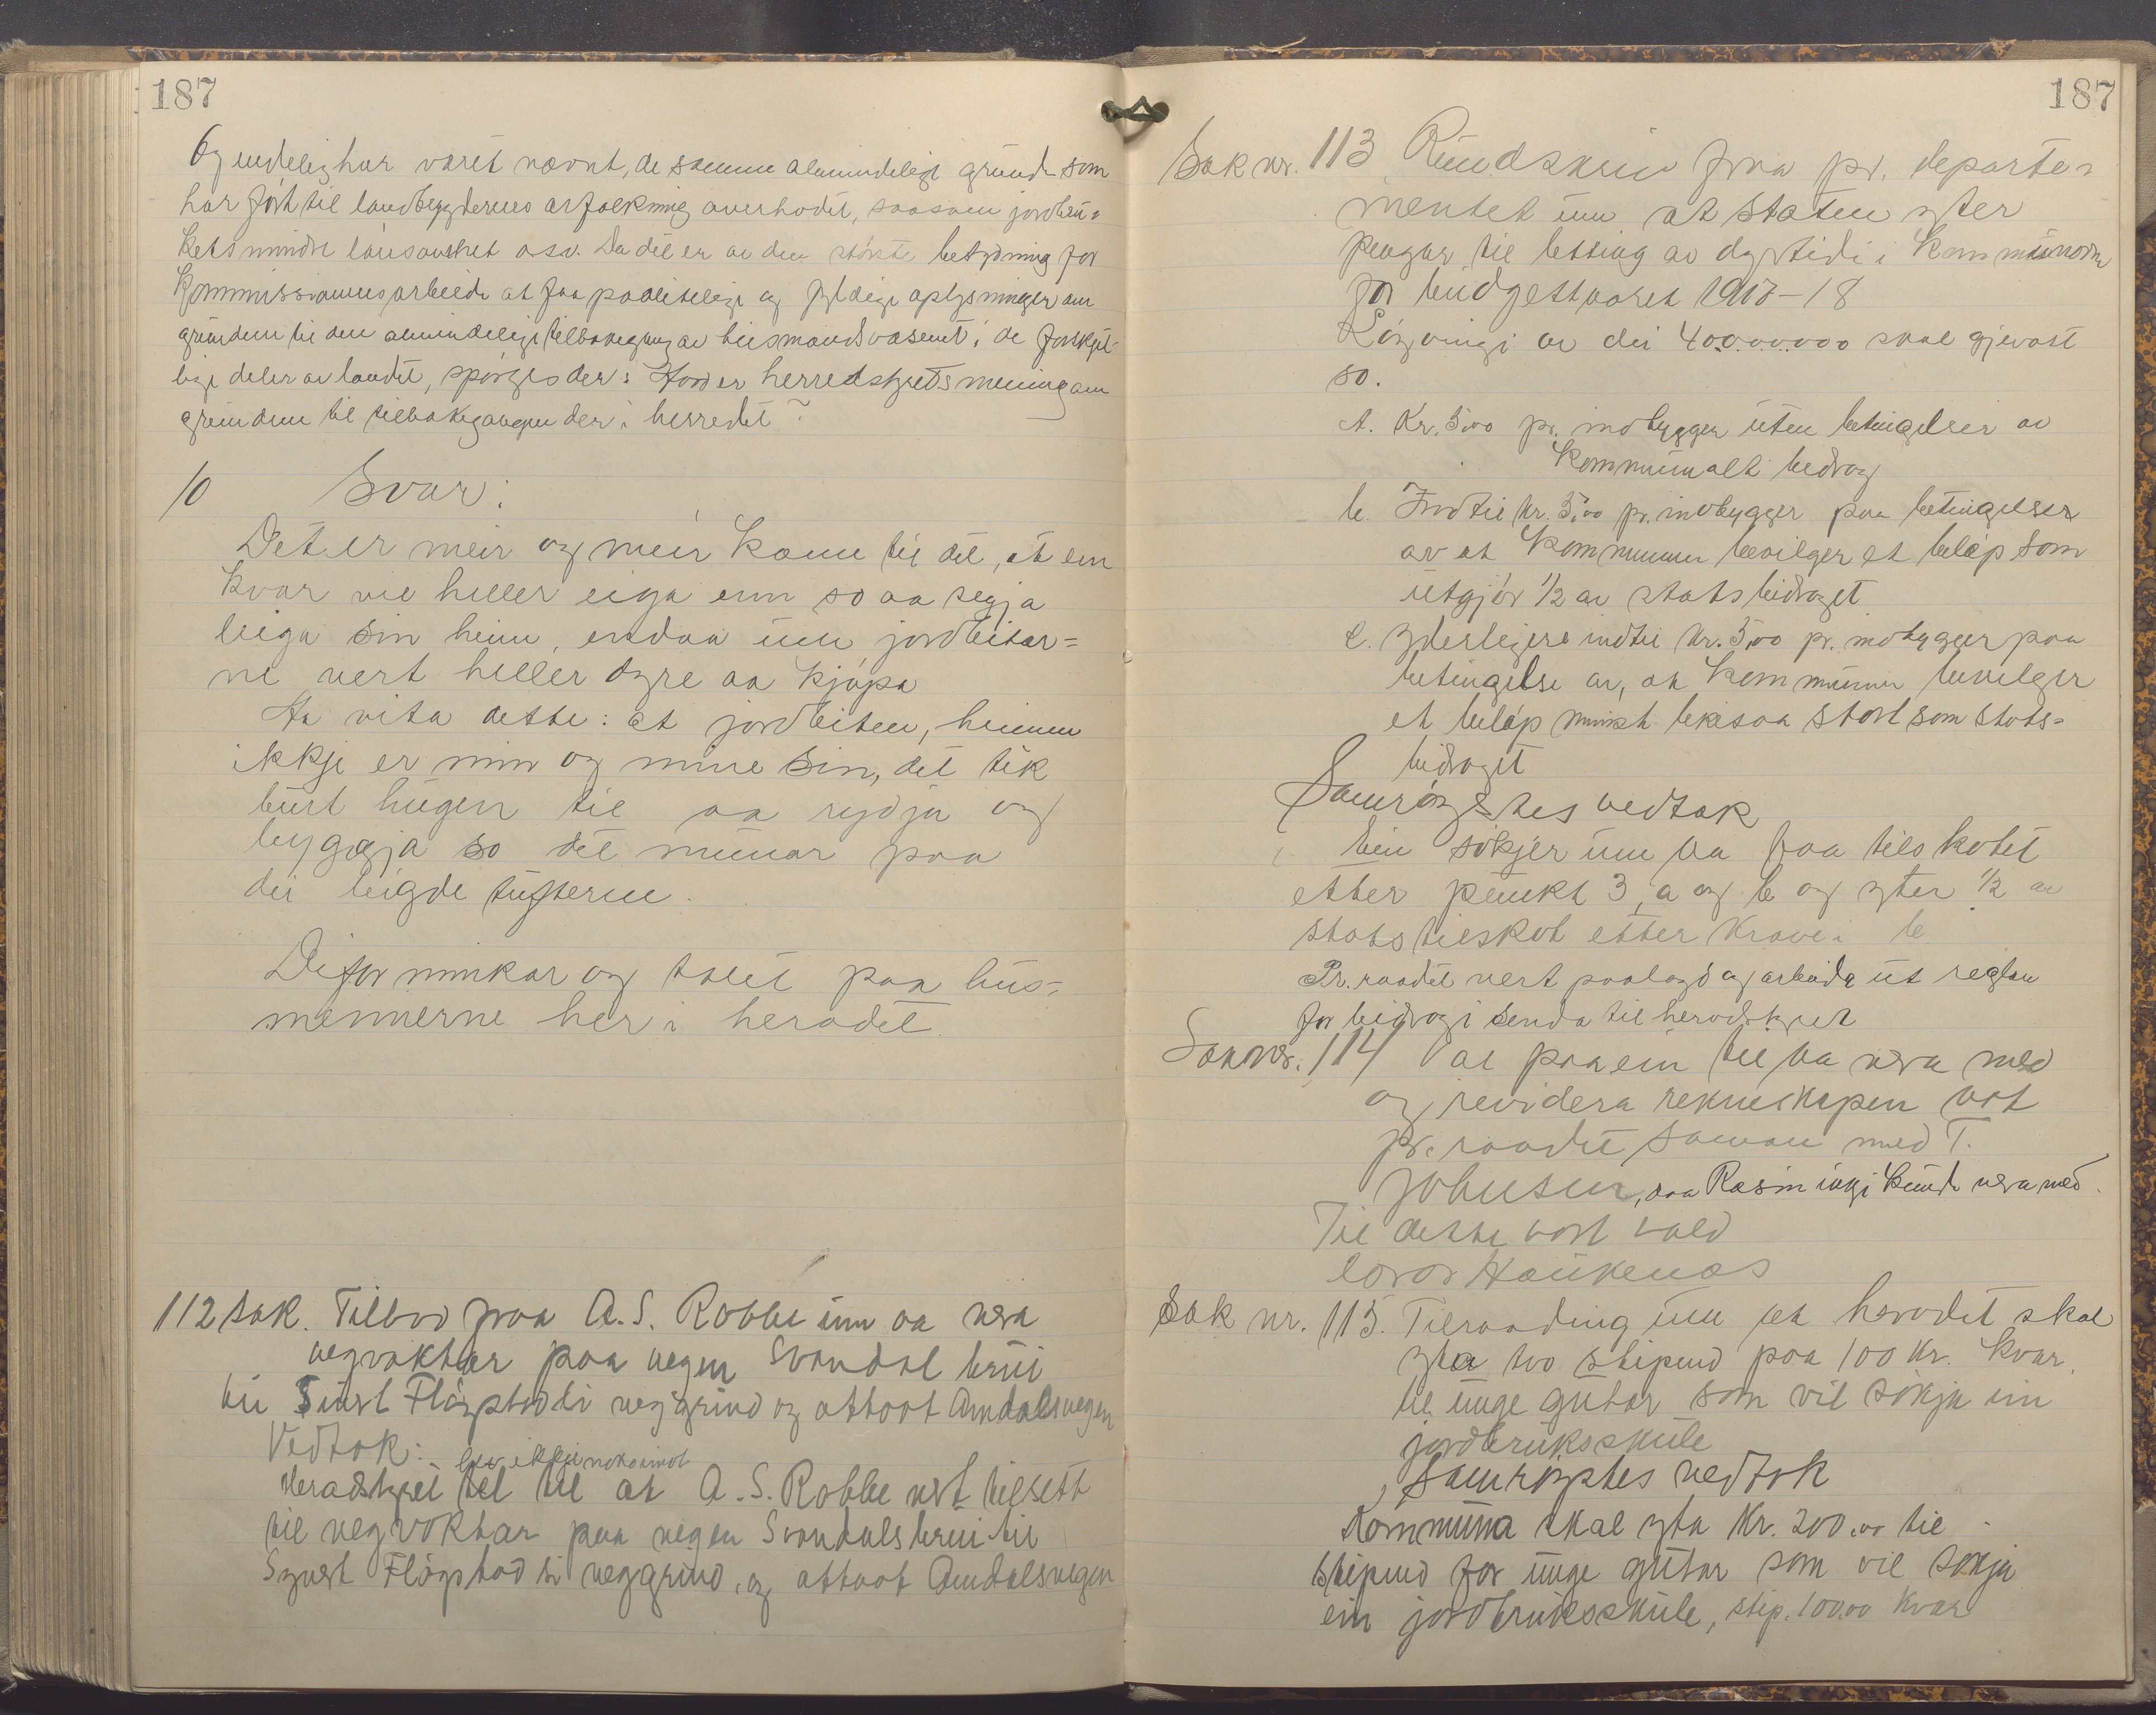 187
Og endelig har været nævnt, de samme alemindelige grunde som
har ført til landbygdernes avfolkning overhodet, saasom jordbru-
kets mindre lønsomhet osv. Da det er av den største betydning for
Kommissionens arbeide at faa paalitelige og fyldige oplysninger om
grunden til den almindelige tilbakegang av husmandsvæsenet i de forskjel-
lige deler av landet, spørges der: Hvad er herredstyrets mening om
grunden til tilbakegangen der i herredet?
10 Svar:
Det er meir og meir kome til det, at ein
kvar vil heller eiga enn so aa segja
leiga sin heim, endaa um jordbitar-
ne vert heller dyre aa kjøpa
Aa vita dette: at jordbiten, heimen
ikkje er min og mine sin, det tek
burt hugen til aa rydja og
byggja so det munar paa
dei leigde tufterne.
Difor minkar og talet paa hus-
mennerne her i heradet.
112 Sak. Tilbod fraa A. S. Robbe um aa vera
vegvaktar paa vegen Svandal brui
til Siust Fløgstad li veggrind og attaat Amdalsvegen
Vedtok:
hev ikkje noko imot
Heradstyret til at A. S. Robbe vert tilsett
til vegvoktar paa vegen Svandalsbrui til
Syust Fløgstad li veggrind, og attaat Amdalsvegen
187
Sak nr. 113 Rundskriv fraa pr. departe-
mentet um at staten yter
pengar til letting av dyrtidi i kommunorne
for budgettaaret 1917-18
Løyvingi av dei 400.00.000 skal gjevast
so.
A. Kr. 5,00 pr. indbygger uten betingelser av
kommunalt bidrag
b. Indtil kr. 5,00 pr. indbygger paa betingelser
av at kommunen bevilger et beløp som
utgjør 1/2 av statsbidraget
c. Yderligere indtil kr. 5,00 pr. indbygger paa
betingelse av, at kommunen bevilger
et beløp minst likesaa stort som stats-
bidraget
Samrøystes vedtak
Ein søkjer um aa faa tilskotet
etter punkt 3, a og b og yter 1/2 av
statstilskot etter krave i b
Pr. raadet vert paalagd og arbeida ut reglar
for bidrag i senda til heradstyret
Sak nr. 114 Val paa ein til aa vera med
og revidera rekneskapen vot
pr. raadet saman med T.
Johnsen, daa Rasm ikkje kunde vera med.
Til dette vart vald
Lovor Haukenæs
Sak nr. 115. Tilraading um at heradet skal
yta tvo stipend paa 100 kr. kvar
til unge gutar som vil søkja ein
jordbruksskule
Samrøystes vedtok
Kommuna skal yta kr. 200.00 til
stipend for unge gutar som vil søkja
ein jordbruksskule, stip. 100.00 kvar